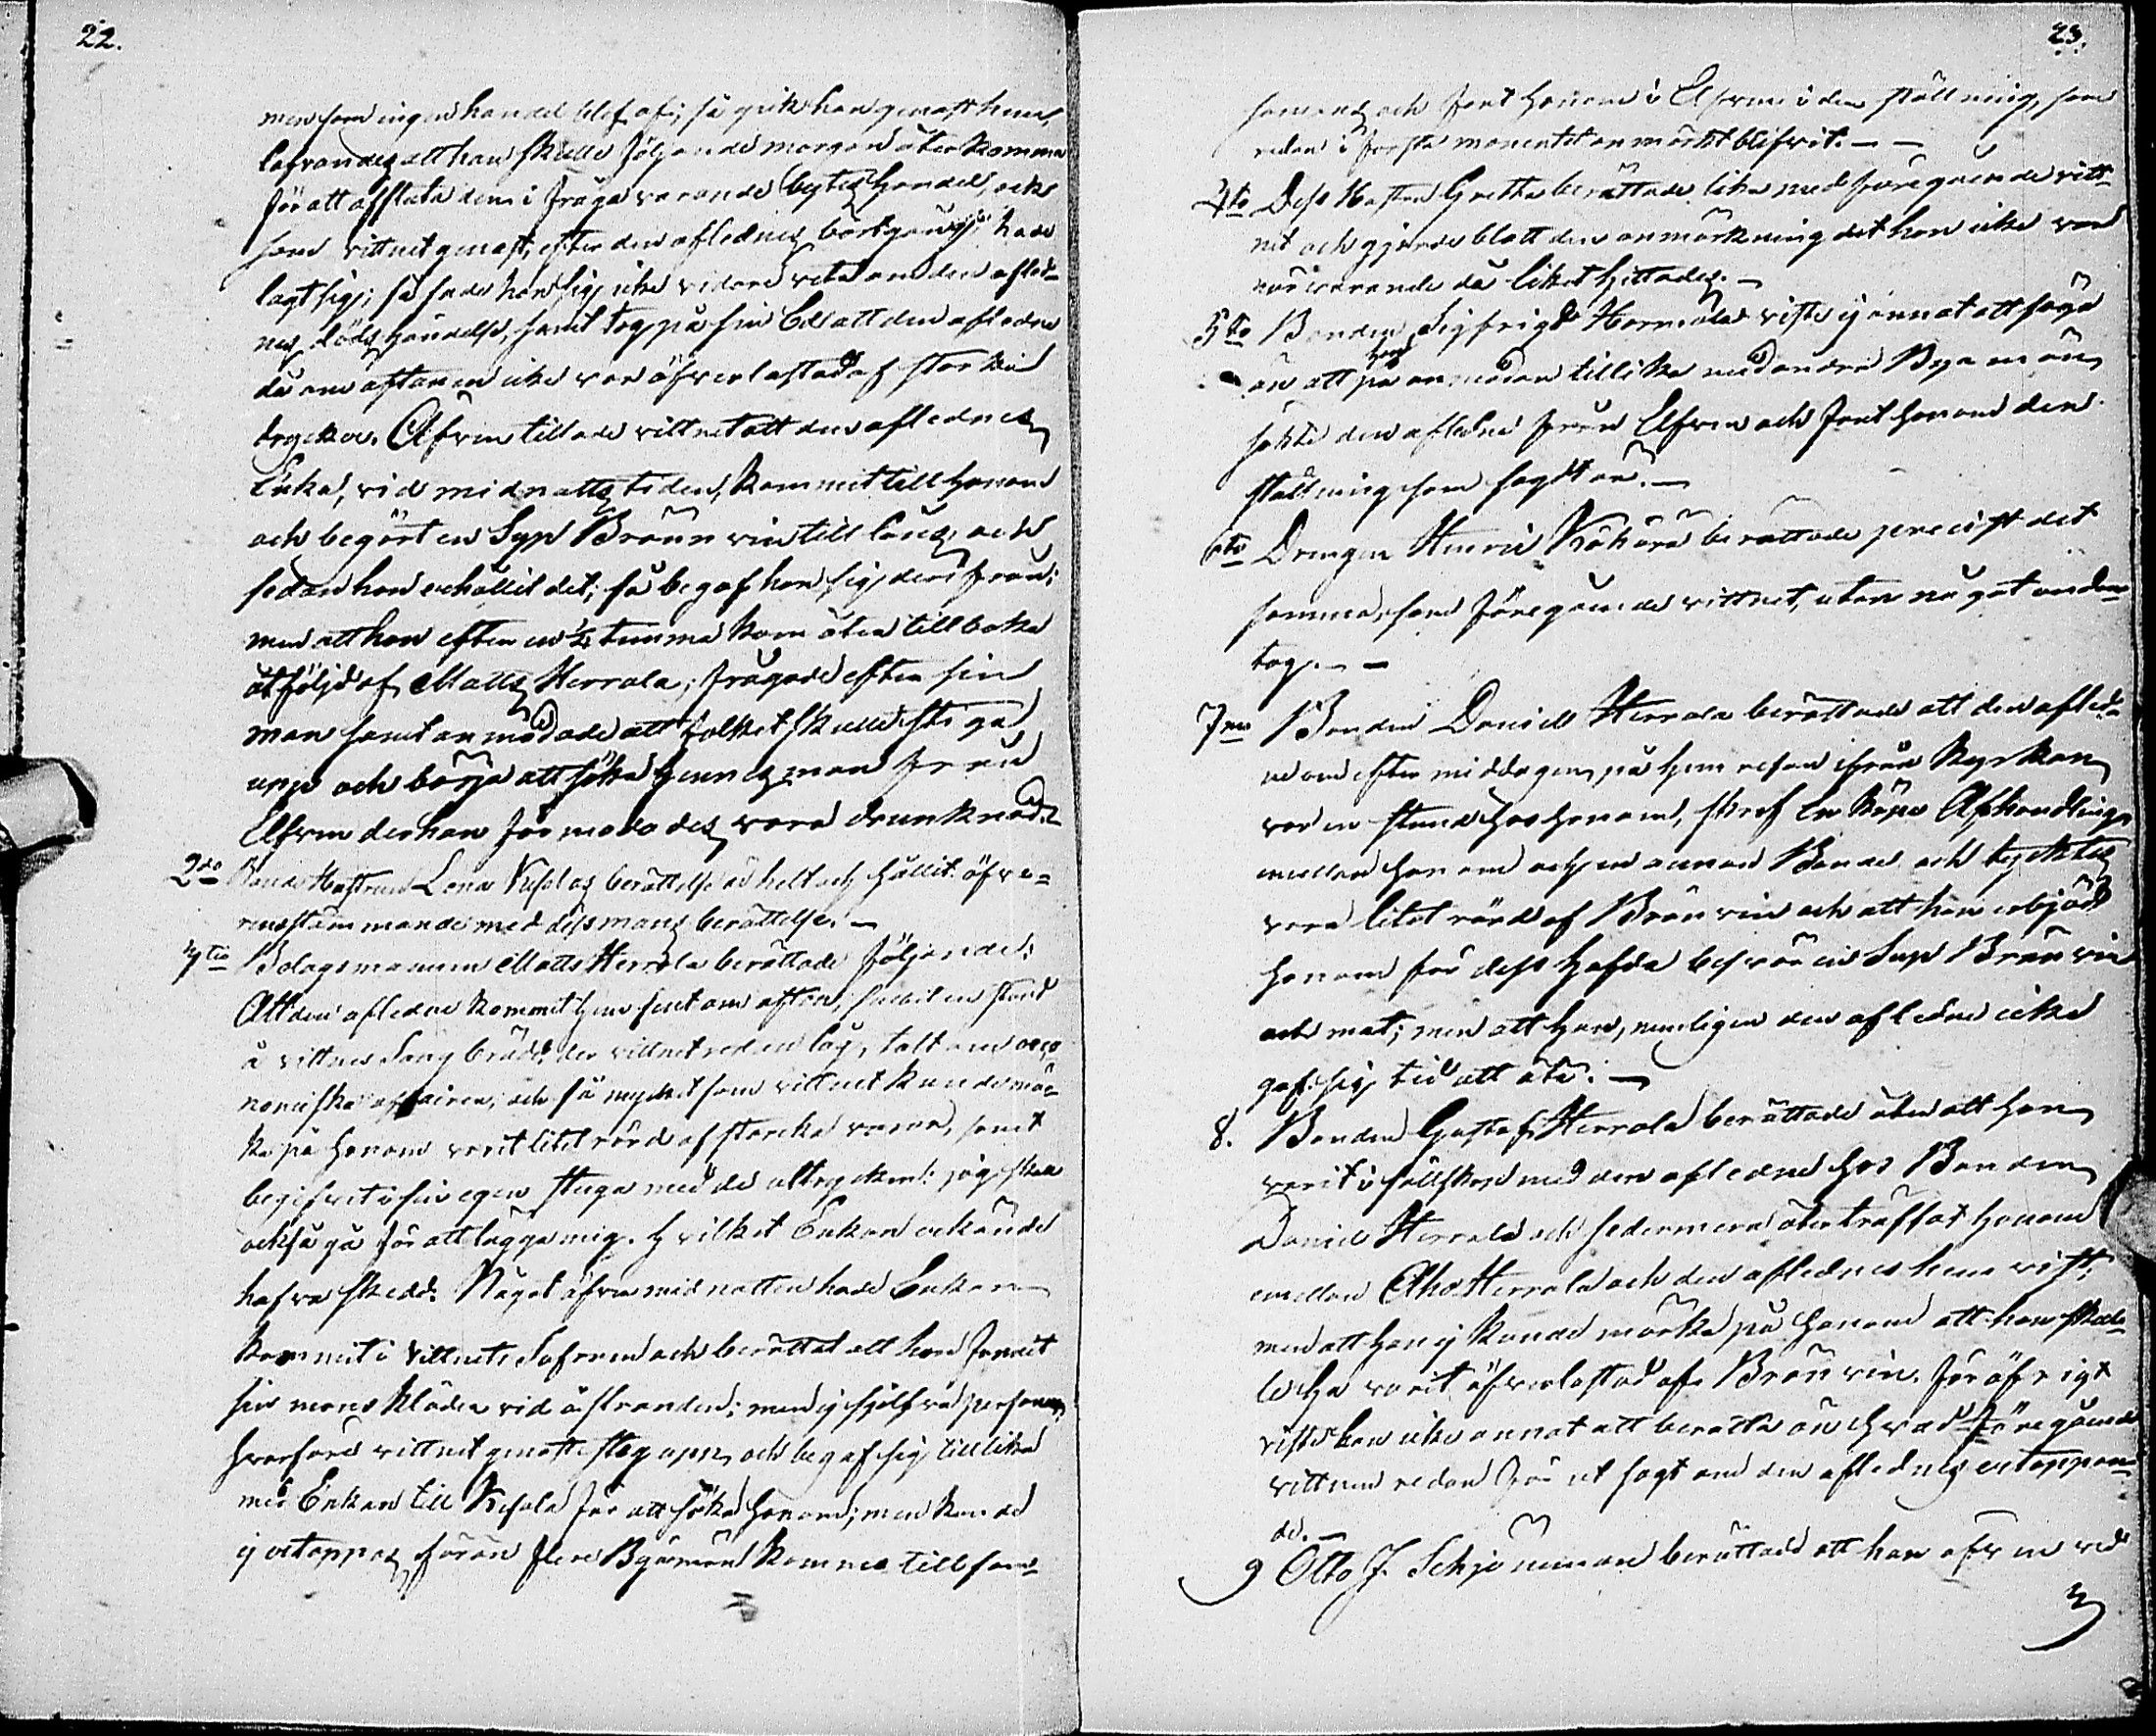 22.
men som ingen handel blef af; så gick han genast hem,
lofvandes att han skulle följande morgon återkomma
för att afsluta den i fråga varande bytes handel, och
som vittnet genast, efter den aflednes bortgång, hade
lagt sig; så sade han sig icke vidare veta om den afled-
nes döds händelse, samt tog på sin Ed att den afledne
då om aftonen icke var öfverlastad af starka
drycker. Äfven tillade vittnet att den aflednes
Enka, vid midnatts tiden, kommit till honom
och begärt en Syp Bränvin till låns, och
sedan hon erhållit det; så begaf hon sig derifrån;
men att hon efter en ¼ timma kom åter tillbaka
åtföljd af Matts Herrala; frågade efter sin
man samt anmodade att folket skulle stiga
upp och börja att söka hennes man från
Elfven der han förmodades vara drunknad.
2do Bonde Hustrun Lena Kesolas berättelse är helt och hållit öfve-
rensstämmande med dess mans berättelse. —
3tio Bolagsmannen Matts Herrola berättade följande:
Att den afledne kommit hem sent om afton, suttit en stund
å vittnes Säng brädd, der vittnet redan låg, talt om oeco
nomiska affairer, och så mycket som vittnet kunde mär-
ka på honom varit litet rörd af starcka varor, samt
begifvit i sin egen stuga med de uttrycken: jag skall
också gå för att lägga mig. Hvilket Enkan erkände
hafva skedt. Något öfver midnatten hade Enkan
kommit i Vittnets Sofrum och berättat att hon funnit
sin mans kläder vid åstranden; men ej sjelfva personen,
hvarföre vittnet genast steg upp, och begaf sig tillika
med Enkan till Kesola för att söka honom; men kunde
ej ertappas förrän flere Byamän kommo tillsam-
23.
mans och funt honom i Elfven i den ställning, som
redan i första momentet anmärkt blifvit. — —
4to Dess Hustru Gretha berättade lika med föregående vitt-
net och gjorde blott den anmärkning det hon icke var
närvarande då liket hittades. —
5to Bonden Sigfrigd Harmola viste ej annat att säga
än att han på anmodan tillika med andra Byamän
sökte den afledne från Elfven och funt honom den
ställning som sagdt är. —
6to Drengen Henric Kähärä berättade precist det
samma, som föregående vittnet, utan något undan
tag. — —
7mo Bonden Daniel Herrola berättade att den afled-
ne om efter middagen, på hem resan ifrån Kyrkan
var en stund hos honom, skref en köpe Afhandling
emellan honom och en annan Bonde och tycktes
vara litet rörd af Brän vin och att han erbjöd
honom för dess hafda besvär en Sup Brän vin
och mat; men att han, nemligen den afledne icke
gaf sig tid att äta. —
8. Bonden Gustaf Herrola berättade åter att han
varit i sällskap med den afledne hos Bonden
Daniel Herrola och sedermera åter träffat honom
emellan Aho Herrola och den aflednes hem vist;
men att han ej kunde märka på honom att han skul-
le ha varit öfverlastad af Brän vin. För öfrigt
viste han icke annat att berätta än hvad föregående
vittnen redan för ut sagt om den aflednes ertappan-
de. —
9 Otto J. Schjöneman berättade att han äfven vid